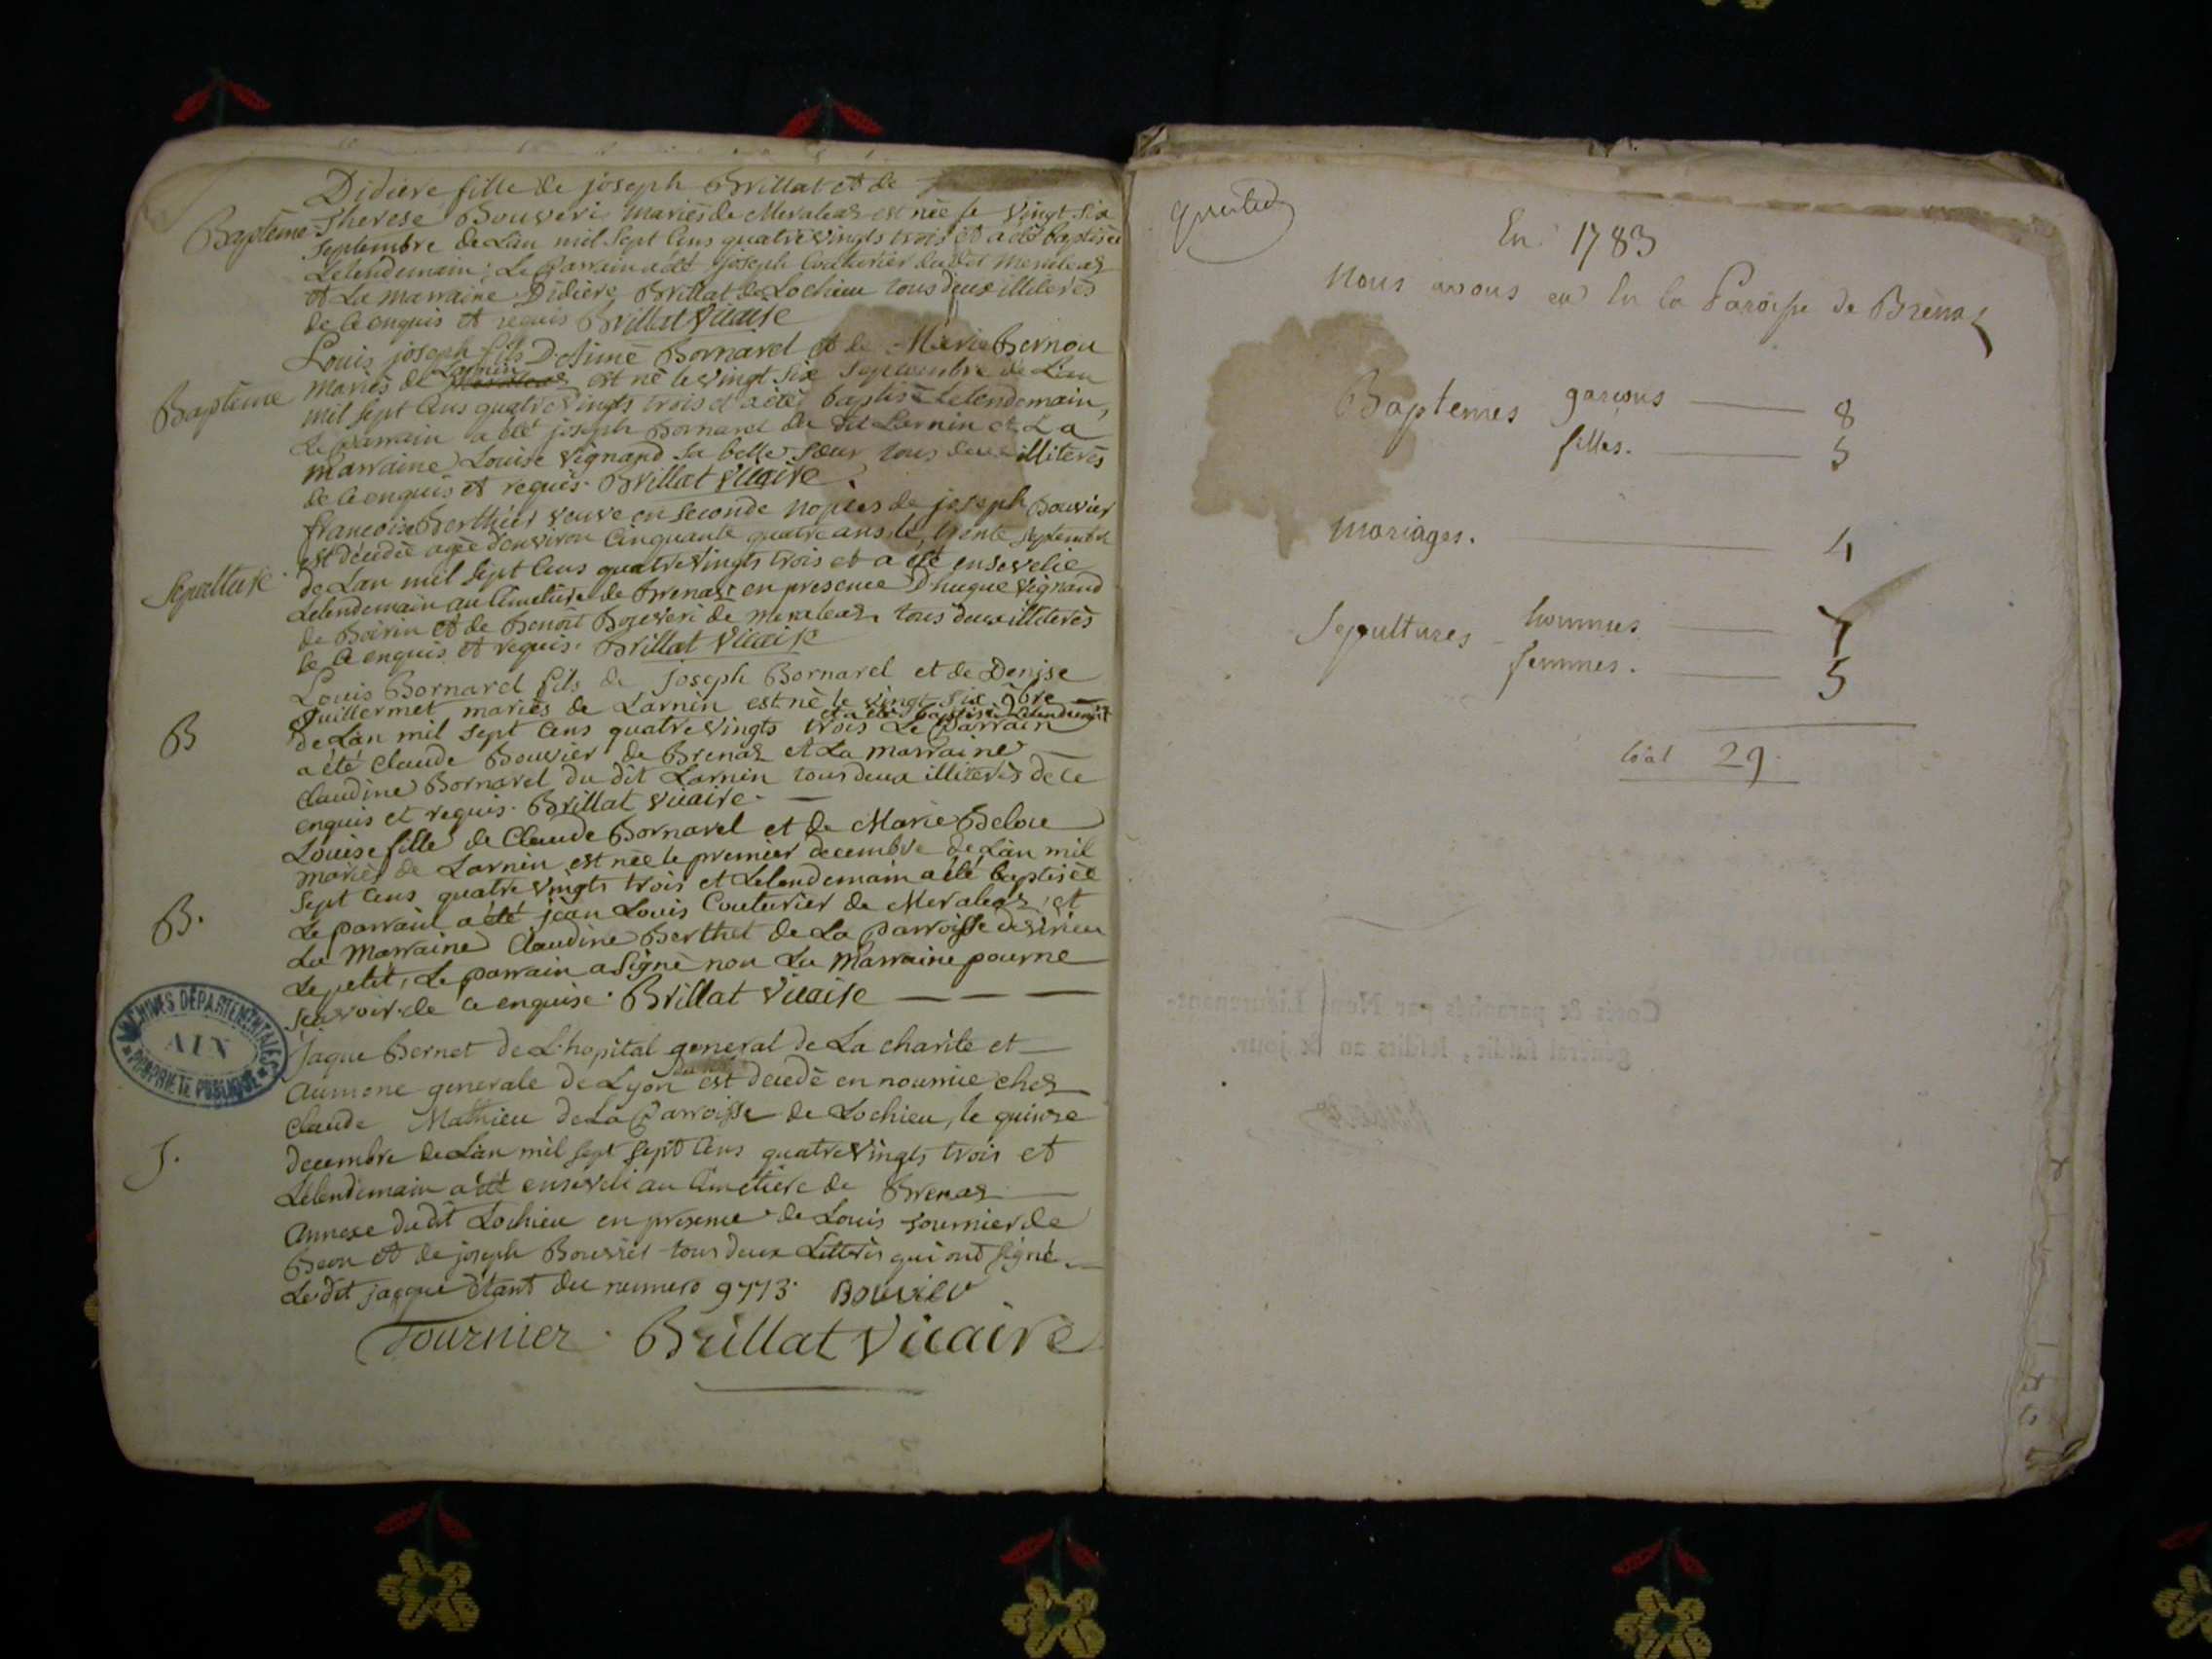 Didiere fille de joseph Brillat et de
Baptême Therese Bouveri mariés de Meraleaz est née le vingt six
septembre de Lân mil sept Cens quatrevingts trois et a été baptisée
Lelendemain; Le Parrain a été joseph Couturier du dit Meraleaz
et La marraine Didiere Brillat de Lochieu tous deux illiterés
de ce enquis et requis Brillat Vicaire
Louis joseph fils D'Aimé Bornarel et de Marie Bernou
Baptême mariés de Larnin est né le vingt six septembre de L'an
mil sept Cens quatrevingts trois et a été baptisé Lelendemain,
Le Parrain a été joseph Bornarel du dit Larnin et La
marraine Louise Vignand sa belle soeur tous deux illiterés
de ce enquis et requis. Brillat Vicaire.
francoise Berthier veuve en seconde nopces de joseph Bouvier
est décédée agée d'environ Cinquante quatre ans le trente septembre
Sepulture de Lan mil sept Cens quatrevingts trois et a été ensevelie
Lelendemain au Cimetiere de Brenaz en presence D'hugue Vignand
de Boirin et de Benoit Bouveri de Meraleaz tous deux illiterés
de Ce enquis et requis. Brillat Vicaire
Louis Bornarel fils de Joseph Bornarel et de Denise
Guillermet mariés de Larnin est né le vingt six 9bre
et a été baptisé Lelendemain
B de Lân mil sept Cens quatrevingts trois Le Parrain
a été Claude Bouvier de Brenaz et La marraine
Claudine Bornarel du dit Larnin tous deux illiterés de Ce
enquis et requis. Brillat Vicaire.
Louise fille de Claude Bornarel et de Marie Belou
mariés de Larnin est née le premier decembre de Lân mil
sept Cens quatrevingts trois et Lelendemain a été baptisée
B. Le parrain a été jean Louis Couturier de Meraleaz et
La Marraine Claudine Berthet de La Parroisse de virieu
Lepetit, Le parrain a signé non La Marraine pour ne
scavoir de ce enquise. Brillat Vicaire
ARCHIVES DÉPARTEMENTALES
AIN
PROPRIÉTÉ PUBLIQUE
Jaque Bernet de L'hopital general de La charité et
aumone generale de Lyon est decedé en nourrice chez
Claude Mathieu de La Parroisse de Lochieu, le quinze
S. decembre de Lân mil sept sept Cens quatrevingts trois et
Lelendemain a été enseveli au Cimetiere de Brenaz
annexe du dit Lochieu en presence de Louis fournier de
Beon et de joseph Bouvier tous deux Litterés qui ont signé
Le dit jacque étant du numero 9773. Bouvier
Fournier. Brillat Vicaire
En 1783
Nous avons eu En la Paroisse de Brenaz
Baptemes garçons 8
filles. 5
Mariages. 4
Sepultures hommes 7
femmes. 5
total 29.
Cotés & paraphés par Nous Lieutenant-
général susdit, susdits an & jour.